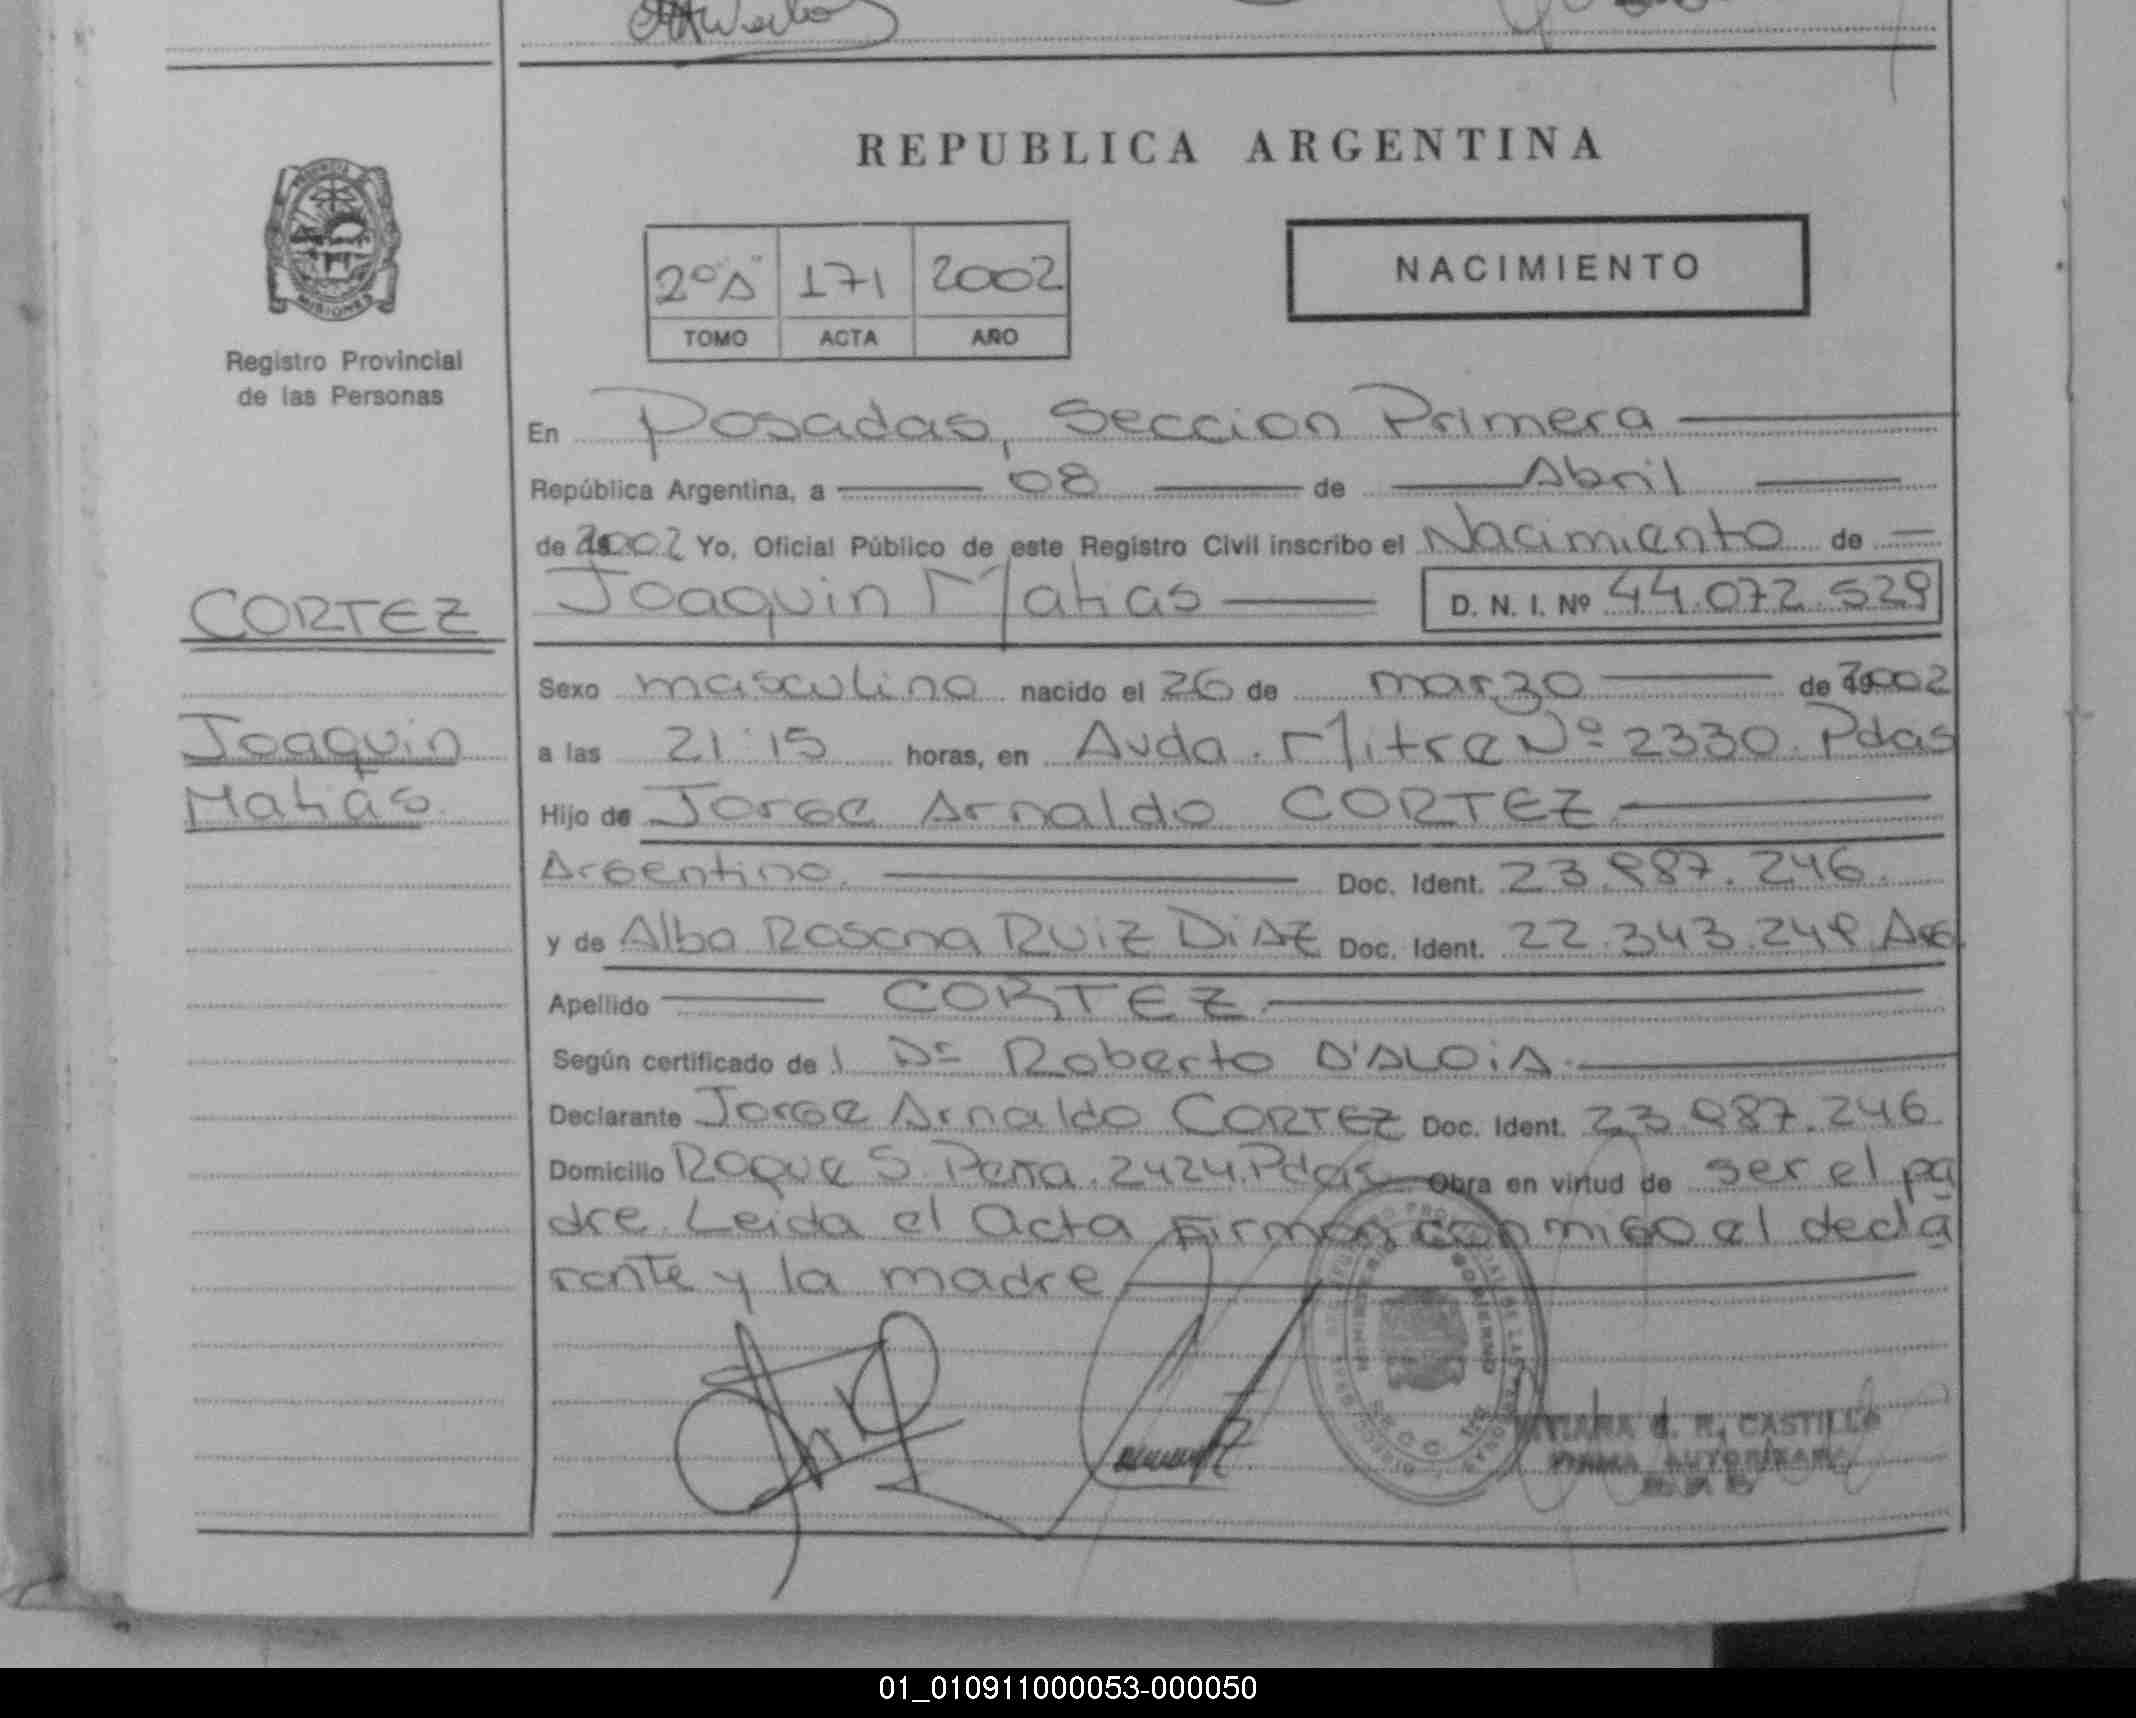 REPUBLICA ARGENTINA
PROVINCIA DE MISIONES
Registro Provincial
de las Personas
2º "A" 171 2002
TOMO ACTA AÑO
NACIMIENTO
En Posadas, Seccion Primera
República Argentina, a 08 de Abril
de 2002 Yo, Oficial Público de este Registro Civil inscribo el Nacimiento de
CORTEZ
Joaquin Matias
Joaquin Matias D. N. I. Nº 44.072.529
Sexo masculino nacido el 26 de marzo de 2002
a las 21:15 horas, en Avda. Mitre Nº 2330. Pdas
Hijo de Jorge Arnaldo CORTEZ
Argentino. Doc. Ident. 23.987.246.
y de Alba Rosana RUIZ DIAZ Doc. Ident. 22.343.249 Arg
Apellido CORTEZ
Según certificado de l Dr Roberto D'ALOIA
Declarante Jorge Arnaldo CORTEZ Doc. Ident. 23.987.246
Domicilio Roque S. Peña. 2424. Pdas Obra en virtud de ser el pa
dre. Leida el acta firman conmigo el decla
rante y la madre
C. R. CASTILLO
FIRMA AUTORIZADA
01_010911000053-000050